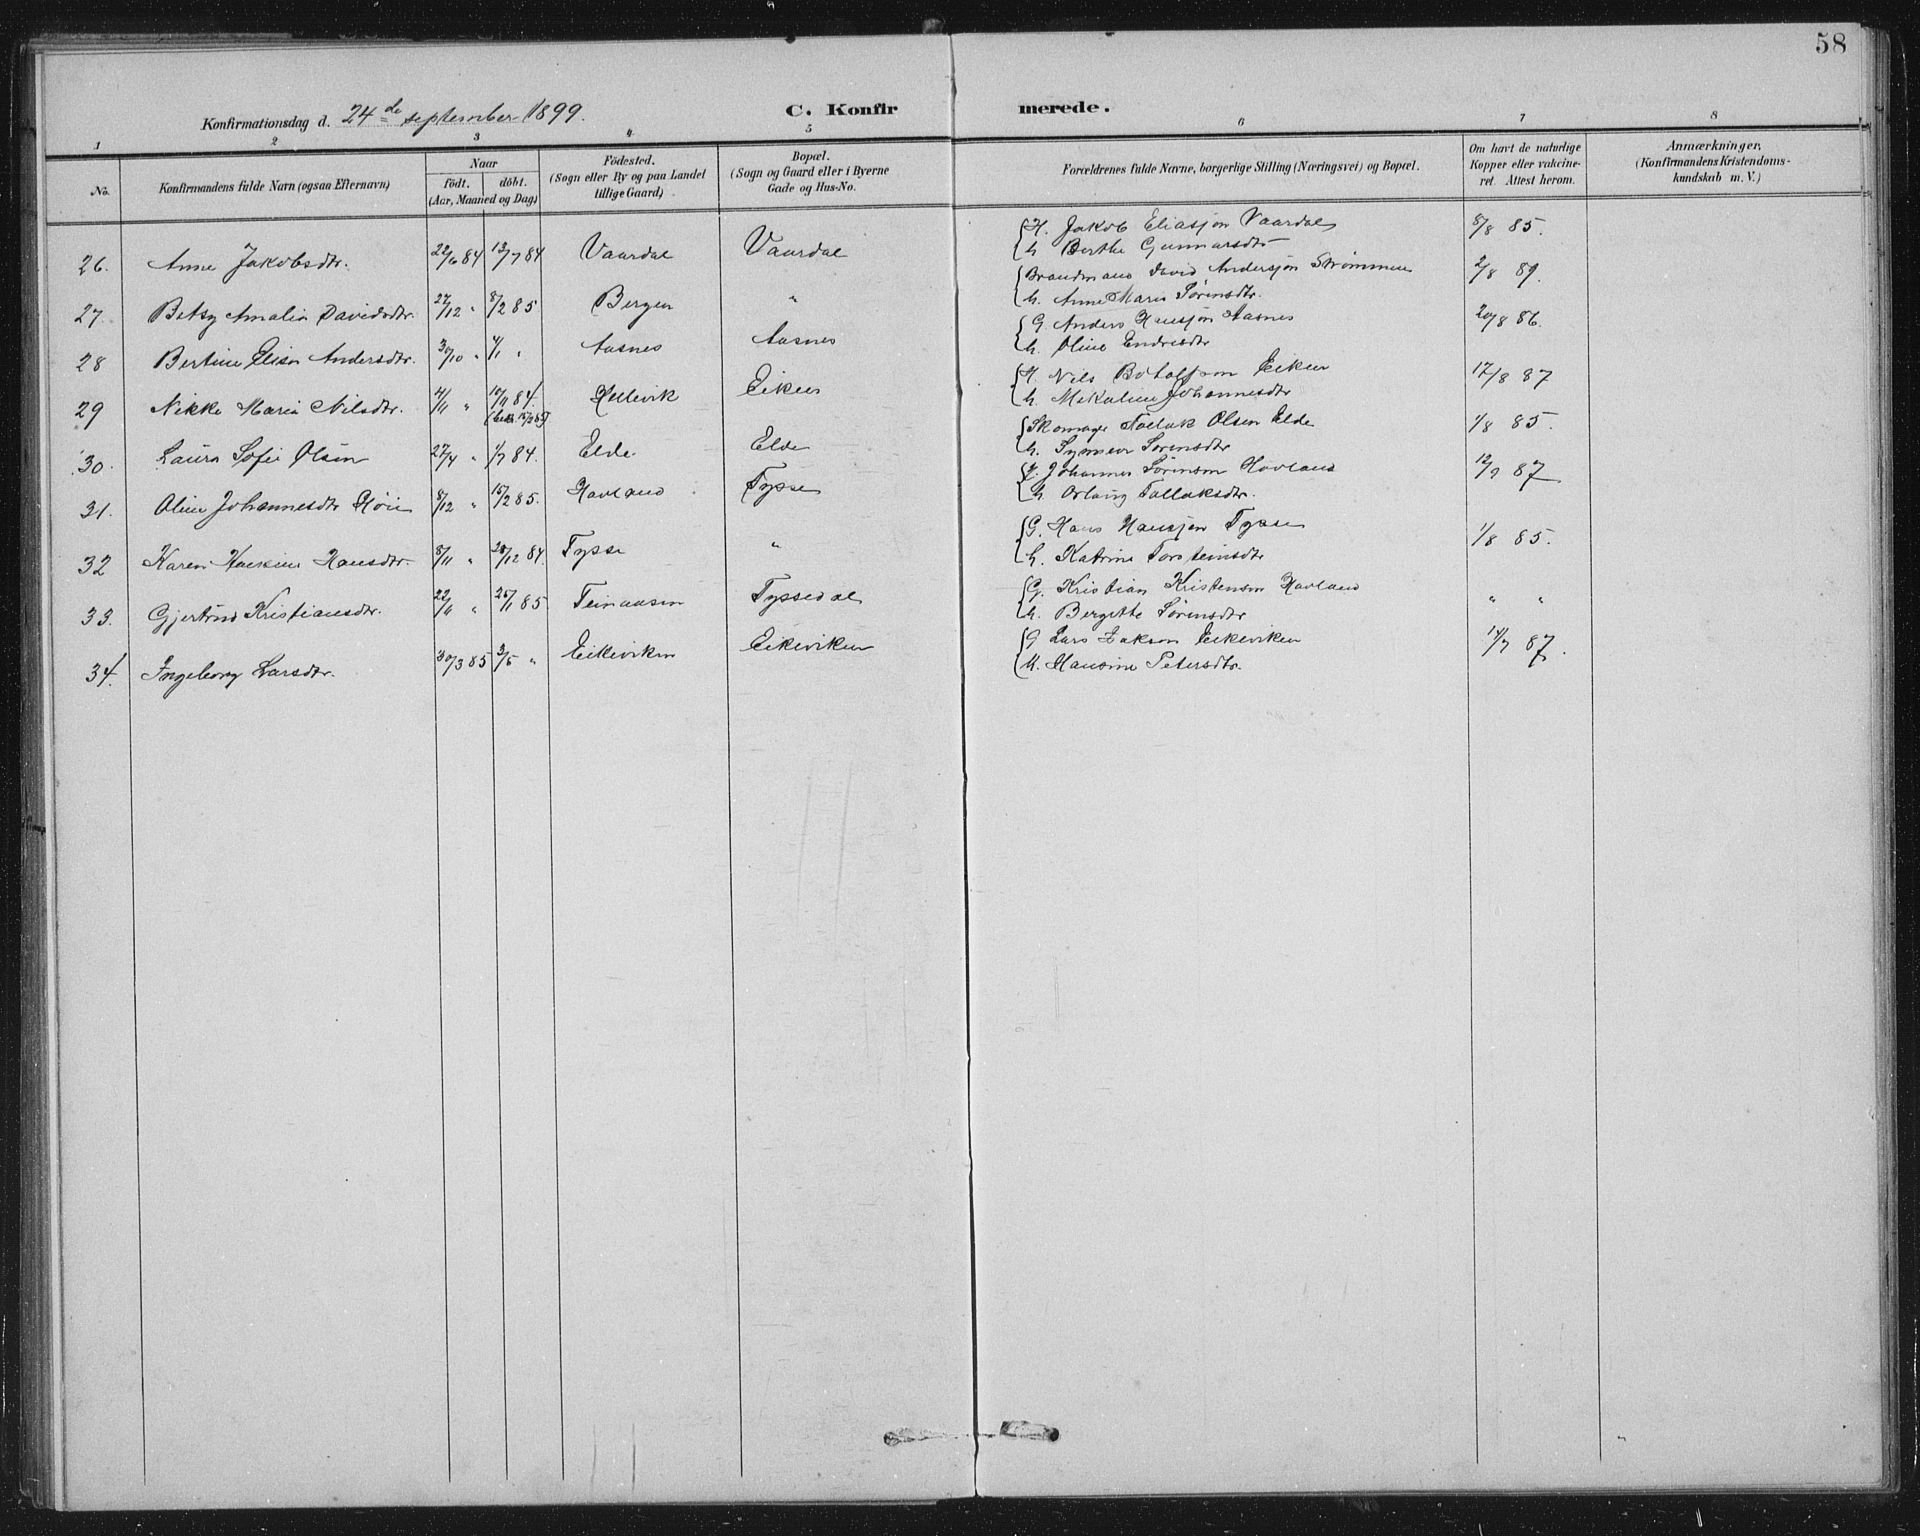 58
Konfirmationsdag d. 24de september 1899.
C. Konfirmerede.
1 2 3 4 5 6 7 8
No.
Konfirmandens fulde Navn (ogsaa Efternavn)
Naar
födt. döbt.
(Aar, Maaned og Dag)
Födested.
(Sogn eller By og paa Landet
tillige Gaard)
Bopæl.
(Sogn og Gaard eller i Byerne
Gade og Hus-No.
Forældrenes fulde Navne, borgerlige Stilling (Næringsvei) og Bopæl.
Om havt de naturlige
Kopper eller vakcine-
ret. Attest herom.
Anmærkninger.
(Konfirmandens Kristendoms-
kundskab m. V.)
26. Anne Jakobsdtr. 22/6 84 13/7 84 Vaardal Vaardal
H. Jakob Eliassøn Vaardal 8/8 85.
h. Berthe Gunnarsdtr
27. Betsy Amalia Davidsdtr. 27/12 " 8/2 85 Bergen "
Brandmand David Anderssøn Strømmen 2/8 89.
h. Anne Marie Sørensdtr.
28 Bertine Elisa Andersdtr. 30/10 " 4/1 " Aasnes Aasnes
G Anders Hanssøn Aasnes 20/8 86.
h. Oline Endresdtr
29 Nikke Maria Nilsdtr. 4/11 " 10/11 84. Hellevik Eiken
15/2 85)
H. Nils Botolfson Eiken 17/8 87
h. Johannesdtr
30. Laura Sofie Olsen 27/4 " 1/7 84. Elde Elde
Skomager Olsen Elde 1/8 85.
h. Sørensdtr
31. Oline Johannesdtr Høie 8/12 " 15/2 85. Havland Tysse
Johannes Sørensen Hovland 12/9 87
h. Tollaksdtr.
32 Karen Hansdtr. 8/11 " 28/12 84. Tysse "
G. Hans Hanssøn Tysse 1/8 85.
h. Katrine Torsteinsdtr
33. Gjertrud Kristiansdtr. 22/11 " 25/1 85 Teinaasen Tyssedal
G. Kristian Kristensen Havland " "
h. Bergitte Sørensdtr
34. Ingeborg Larsdtr. 30/3 85 3/5 " Eikeviken Eikeviken
G Lars Eikeviken 14/7 87.
h. Hansine Petersdtr.